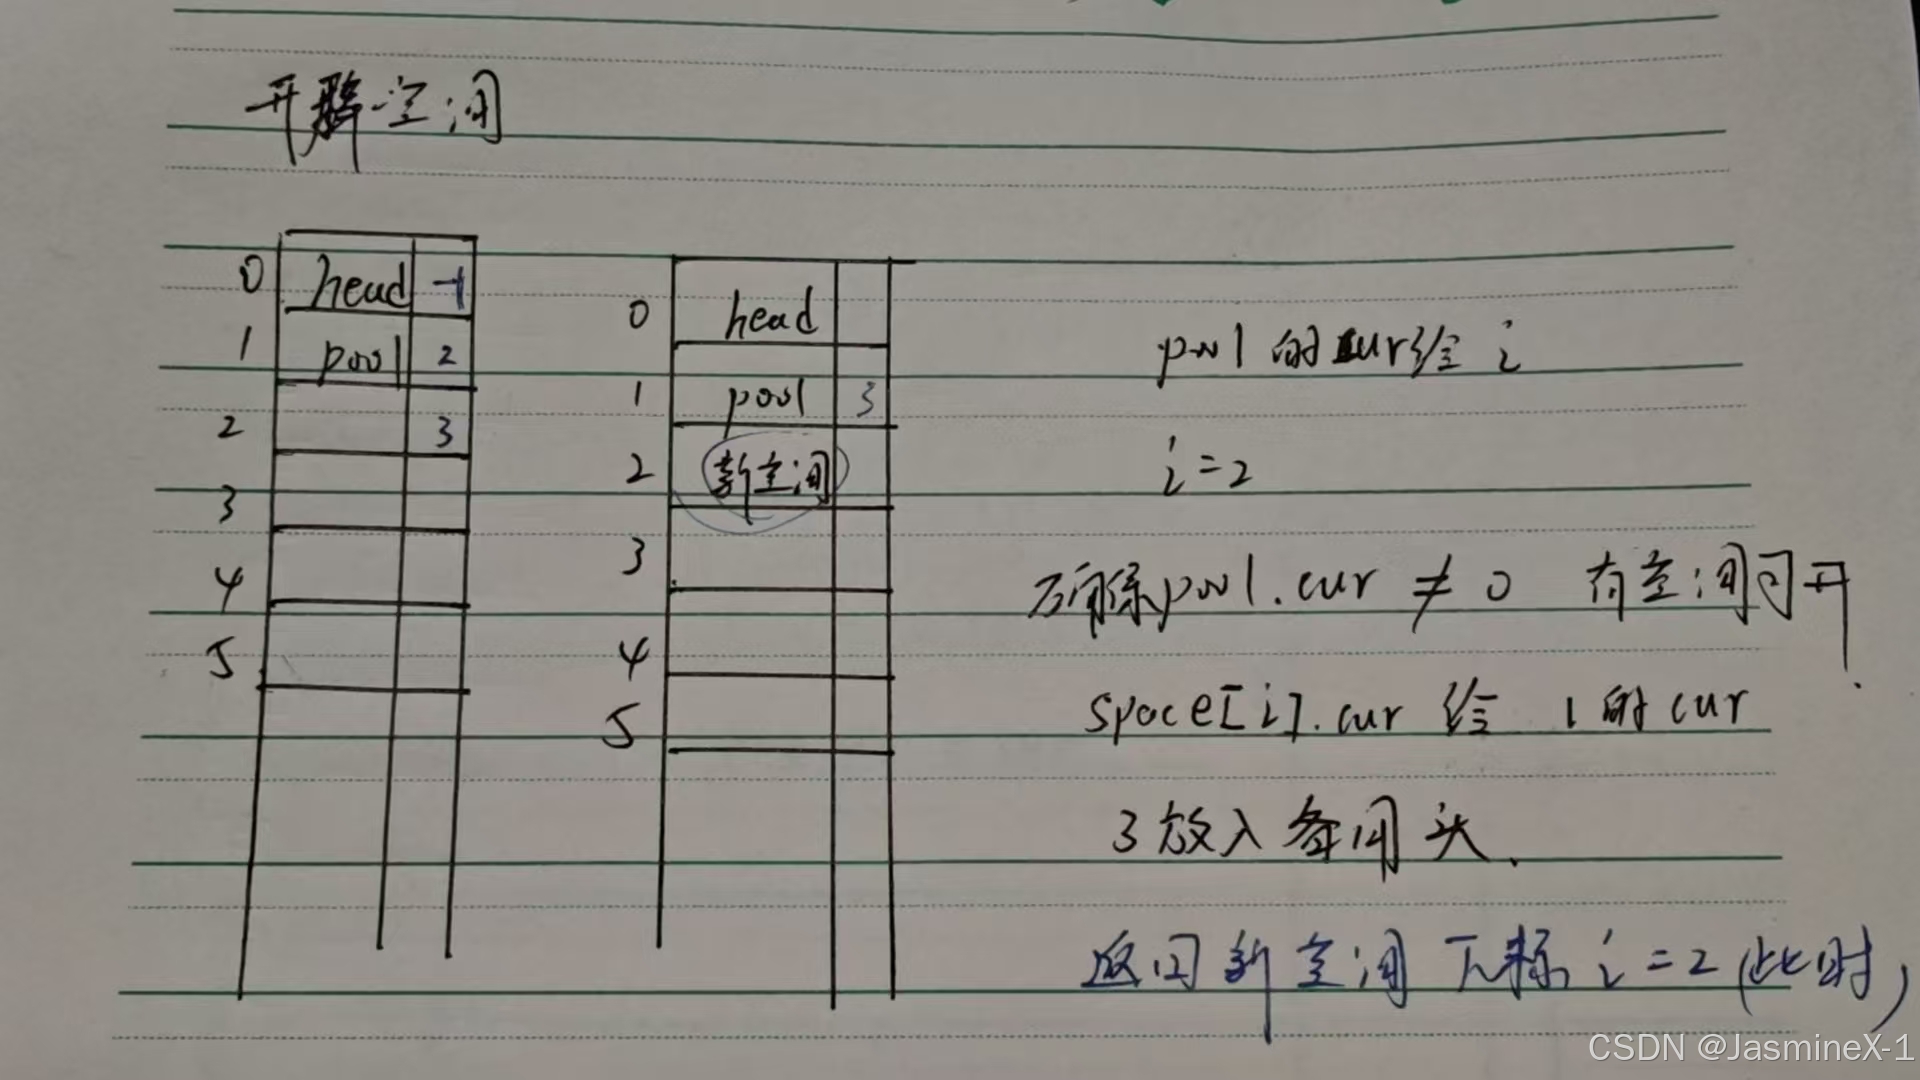 开辟空间
0 head -1
1 pool 2
2 3
3
4
5
0 head
1 pool 3
2 新空间
3
4
5
pool 的 cur给 i
i=2
确保pool.cur ≠ 0 有空间可开.
space[i].cur 给 1 的 cur
3放入备用头.
返回新空间下标 i=2(此时)
CSDN @JasmineX-1